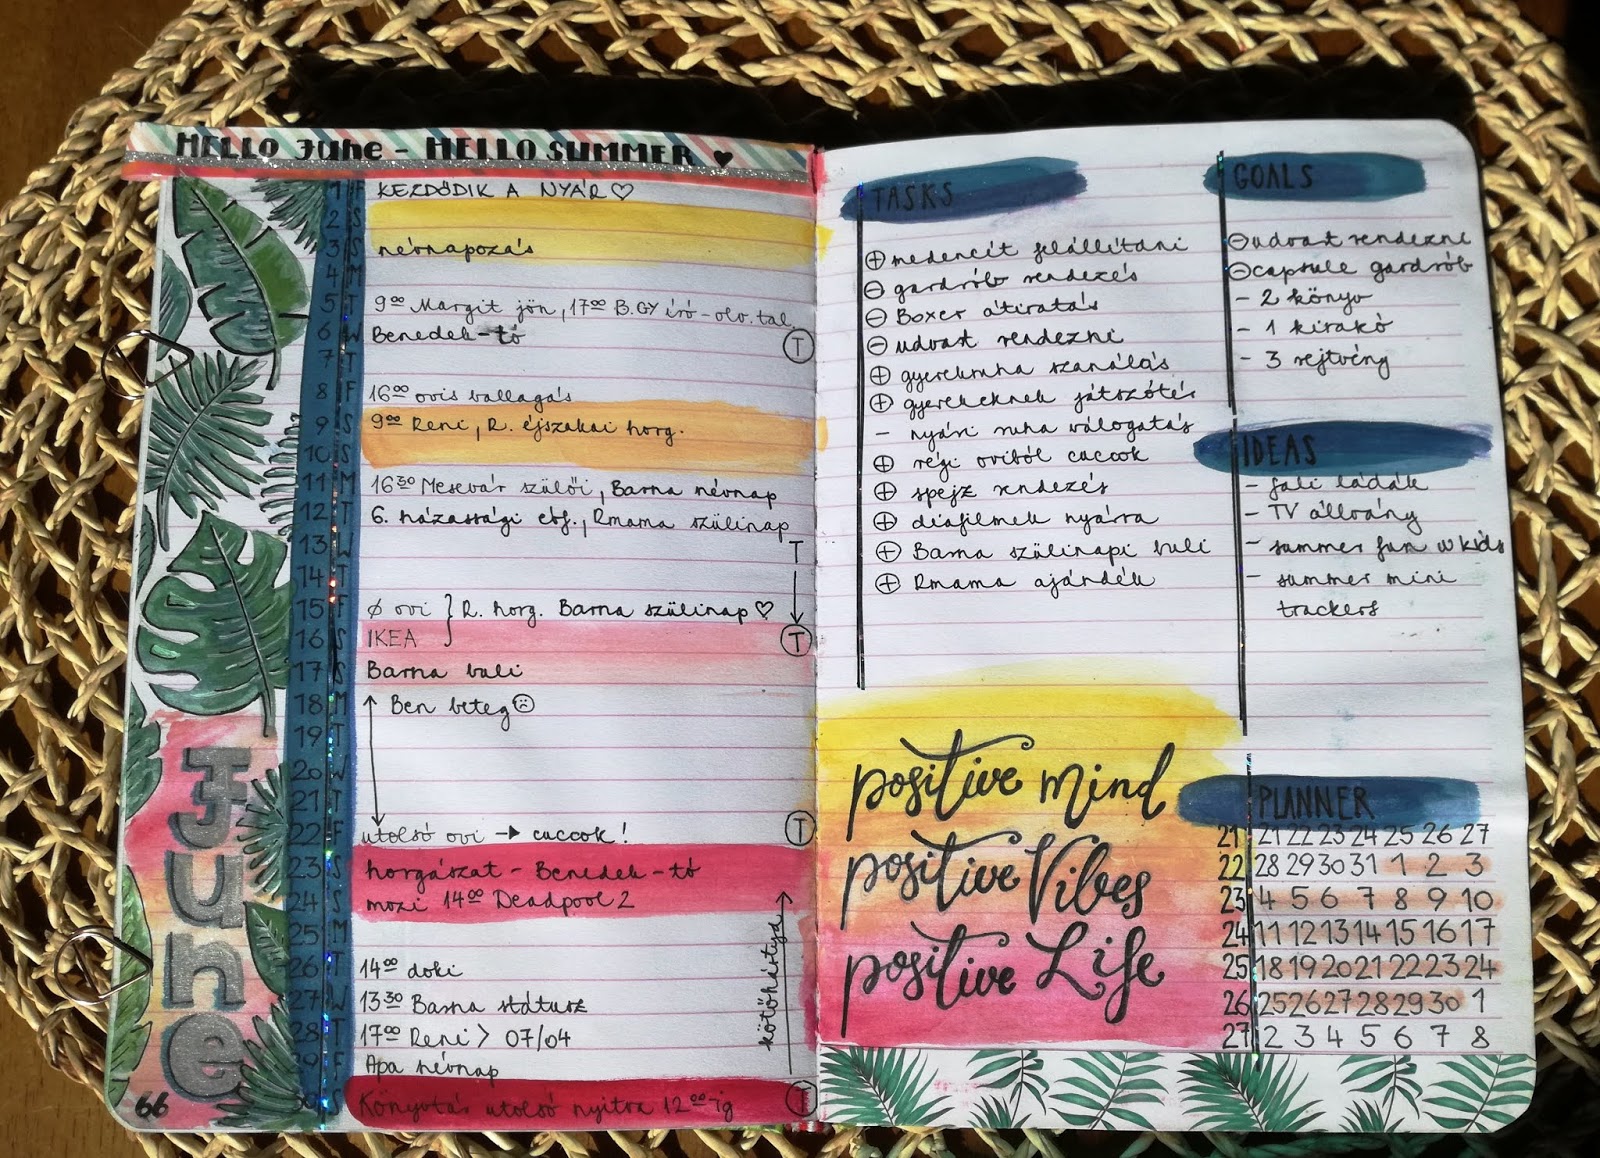 HELLO June - HELLO SUMMER ♥
1 F KEZDŐDIK A NYÁR ♡
2 S
3 S névnapozás
4 M
5 T 9⁰⁰ Margit jön, 17⁰⁰ B.GY író-olv. tal.
6 W Benedek-tó T
7 T
8 F 16⁰⁰ ovis ballagás
9 S 9⁰⁰ Reni, R. éjszakai horg.
10 S
11 M 16³⁰ Mesevár szülői, Barna névnap
12 T 6. házassági évf., Rmama szülinap
13 W T
14 T
15 F Ø ovi } R. horg. Barna szülinap ♡
16 S IKEA T
17 S Barna buli
18 M Ben beteg ☹
19 T
20 W
21 T
22 F utolsó ovi → cuccok! T
23 S horgászat - Benedek-tó
24 S mozi 14⁰⁰ Deadpool 2
25 M
26 T 14⁰⁰ doki
27 W 13³⁰ Barna státusz
28 T 17⁰⁰ Reni > 07/04
29 F Apa névnap
30 S Könyvtár utolsó nyitva 12⁰⁰-ig T
kötőhártya →
June
66
TASKS
⊕ medencét felállítani
⊖ gardrób rendezés
⊖ Boxer átiratás
⊖ udvart rendezni
⊕ gyerekruha szanálás
⊕ gyerekeknek játszótér
- nyári ruha válogatás
⊕ régi oviból cuccok
⊕ spejz rendezés
⊕ diafilmek nyárra
⊕ Barna szülinapi buli
⊕ Rmama ajándék
GOALS
⊖ udvart rendezni
⊖ capsule gardrób
- 2 könyv
- 1 kirakó
- 3 rejtvény
IDEAS
- fali ládák
- TV állvány
- summer fun w kids
- summer mini
trackers
positive mind
positive Vibes
positive Life
PLANNER
21 21 22 23 24 25 26 27
22 28 29 30 31 1 2 3
23 4 5 6 7 8 9 10
24 11 12 13 14 15 16 17
25 18 19 20 21 22 23 24
26 25 26 27 28 29 30 1
27 2 3 4 5 6 7 8